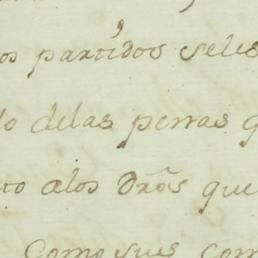 os partidos seles
lo delas penas q
to alos dr̃õs que
Como sus com